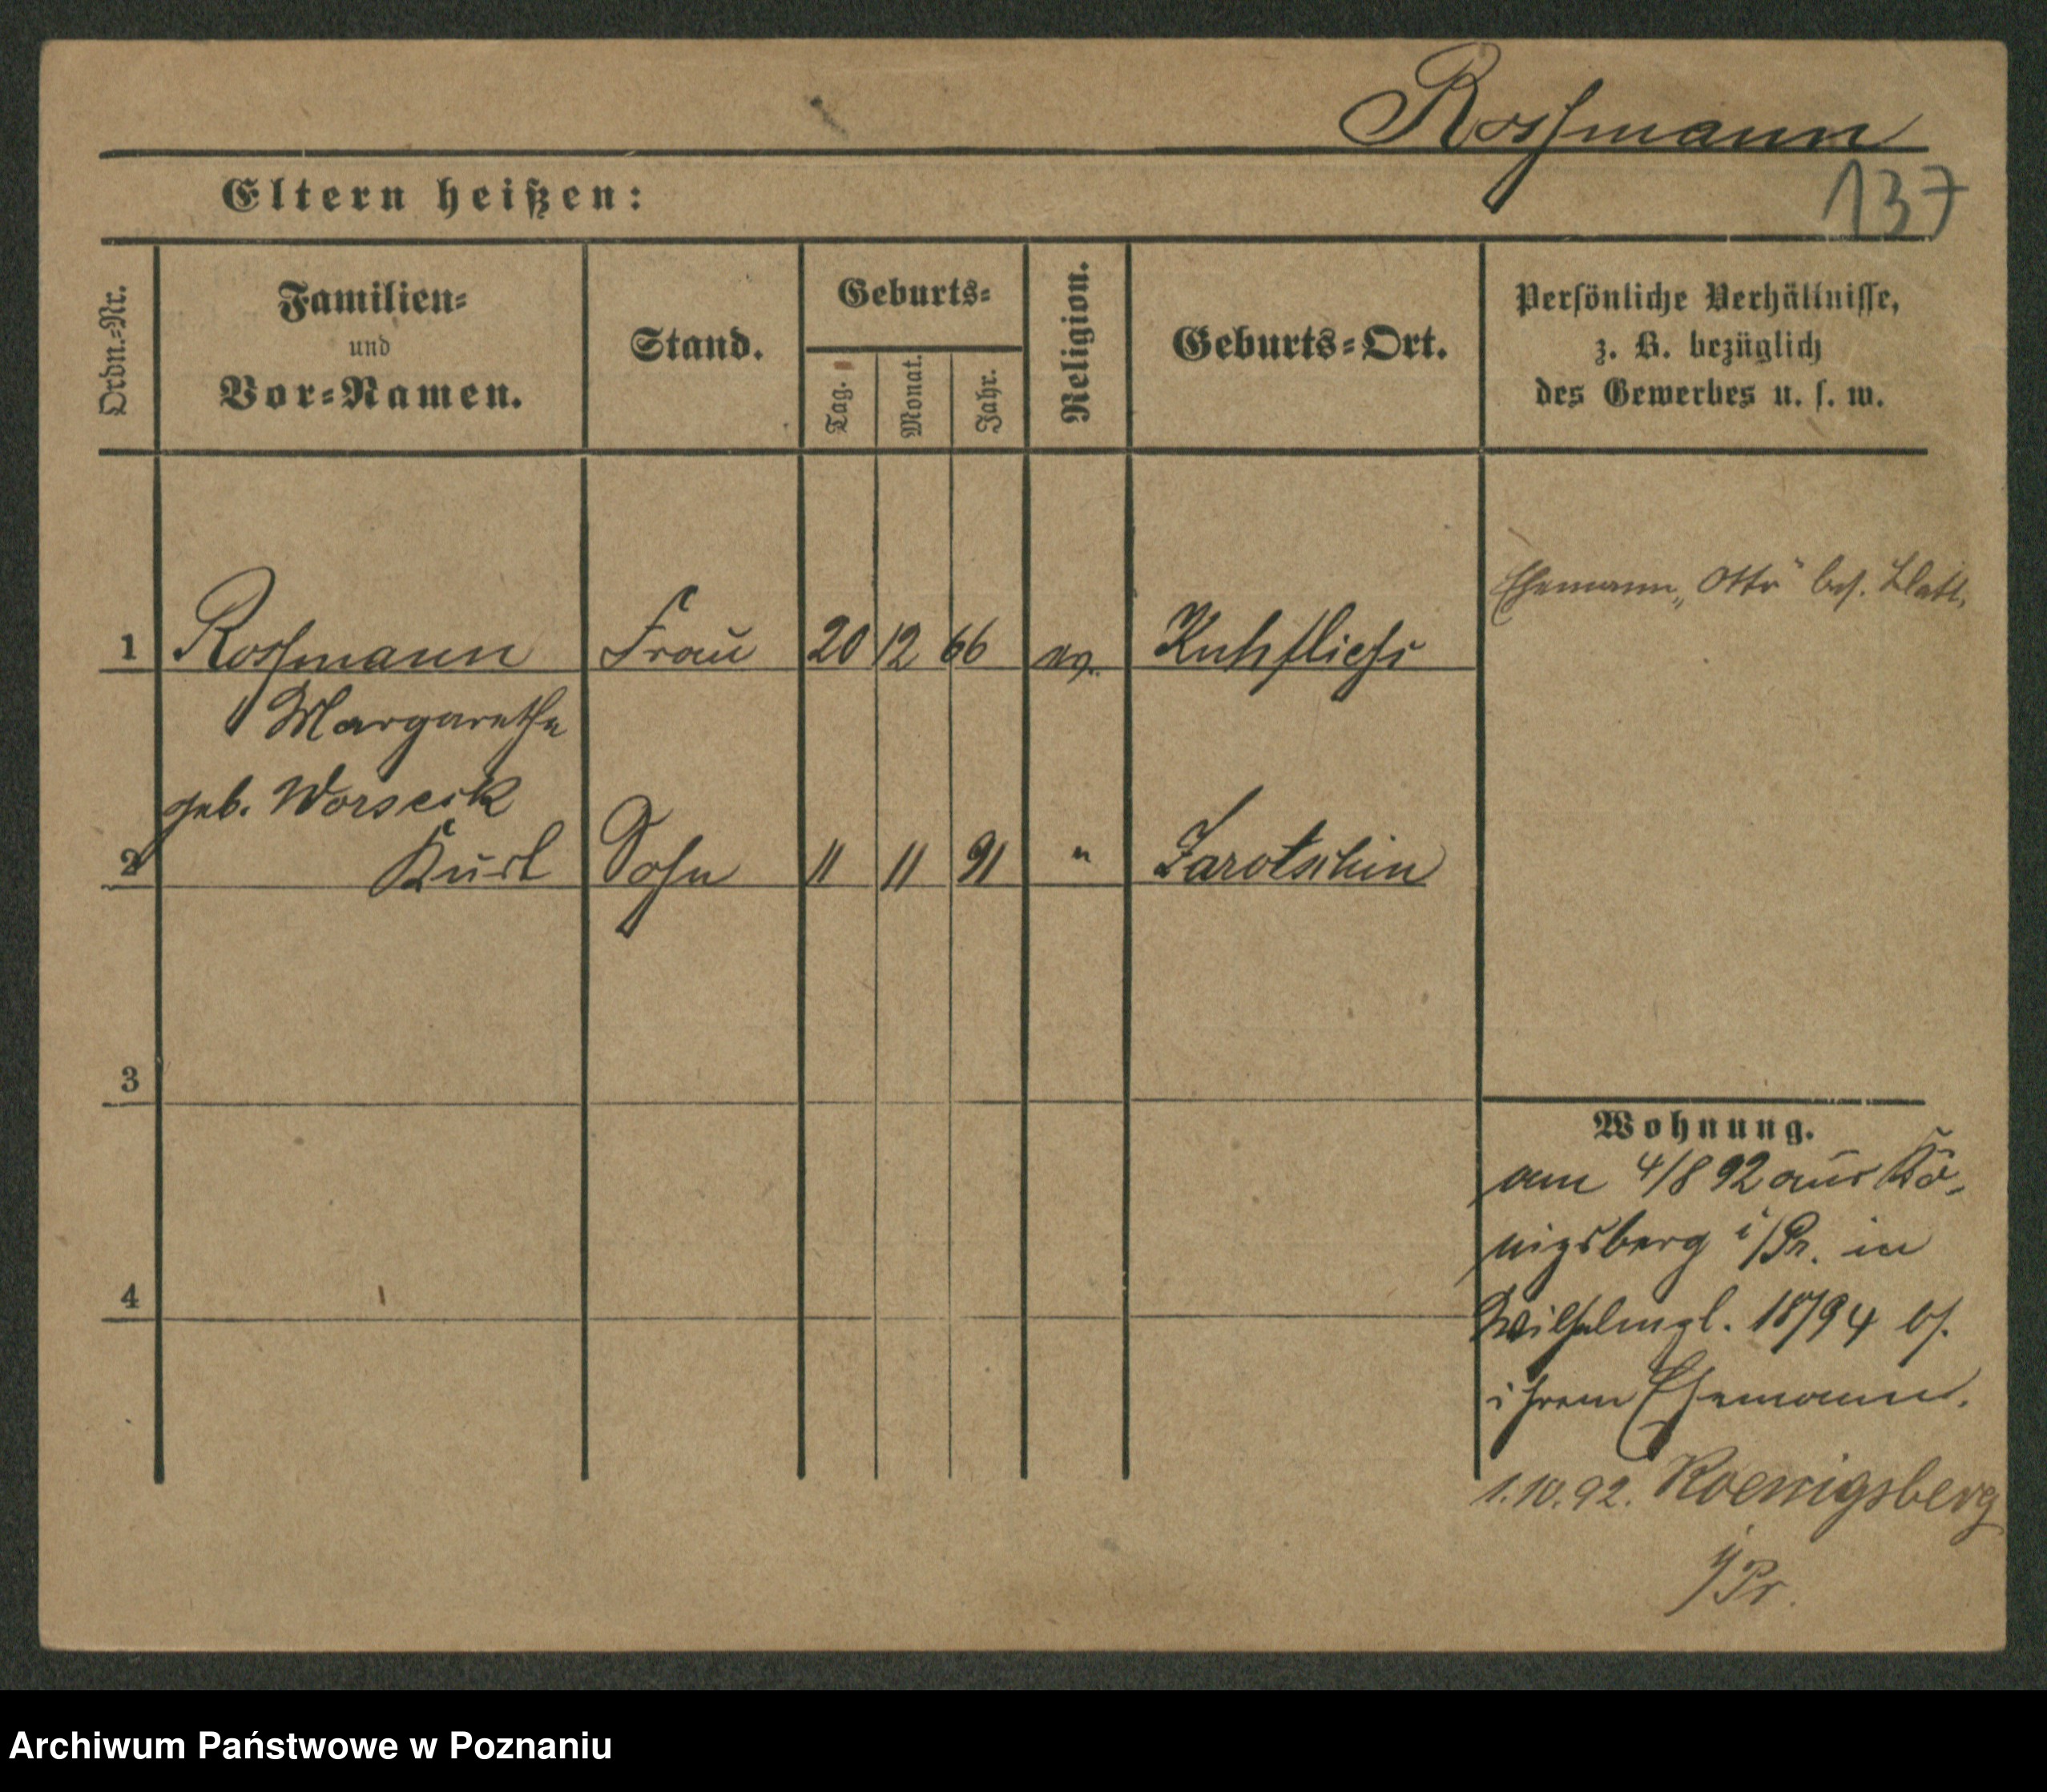 Rossmann
137
Eltern heißen:
Ordn.-Nr.
Familien-
und
Vor-Namen.
Stand.
Geburts-
Tag.
Monat.
Jahr.
Religion.
Geburts-Ort.
Persönliche Verhältnisse,
z. B. bezüglich
des Gewerbes u. s. w.
Ehemann „Otto" bes. Blatt.
1 Rossmann Frau 20 12 66 ev. Kuhfliess
Margarethe
geb. Worseck
2 Kurt Sohn 11 11 91 " Jarotschin
3
4
Wohnung.
am 4/8 92 aus Kö-
nigsberg i/Pr. in
18/94
ihrem Ehemann.
1.10.92. Koenigsberg
i/Pr.
Archiwum Państwowe w Poznaniu